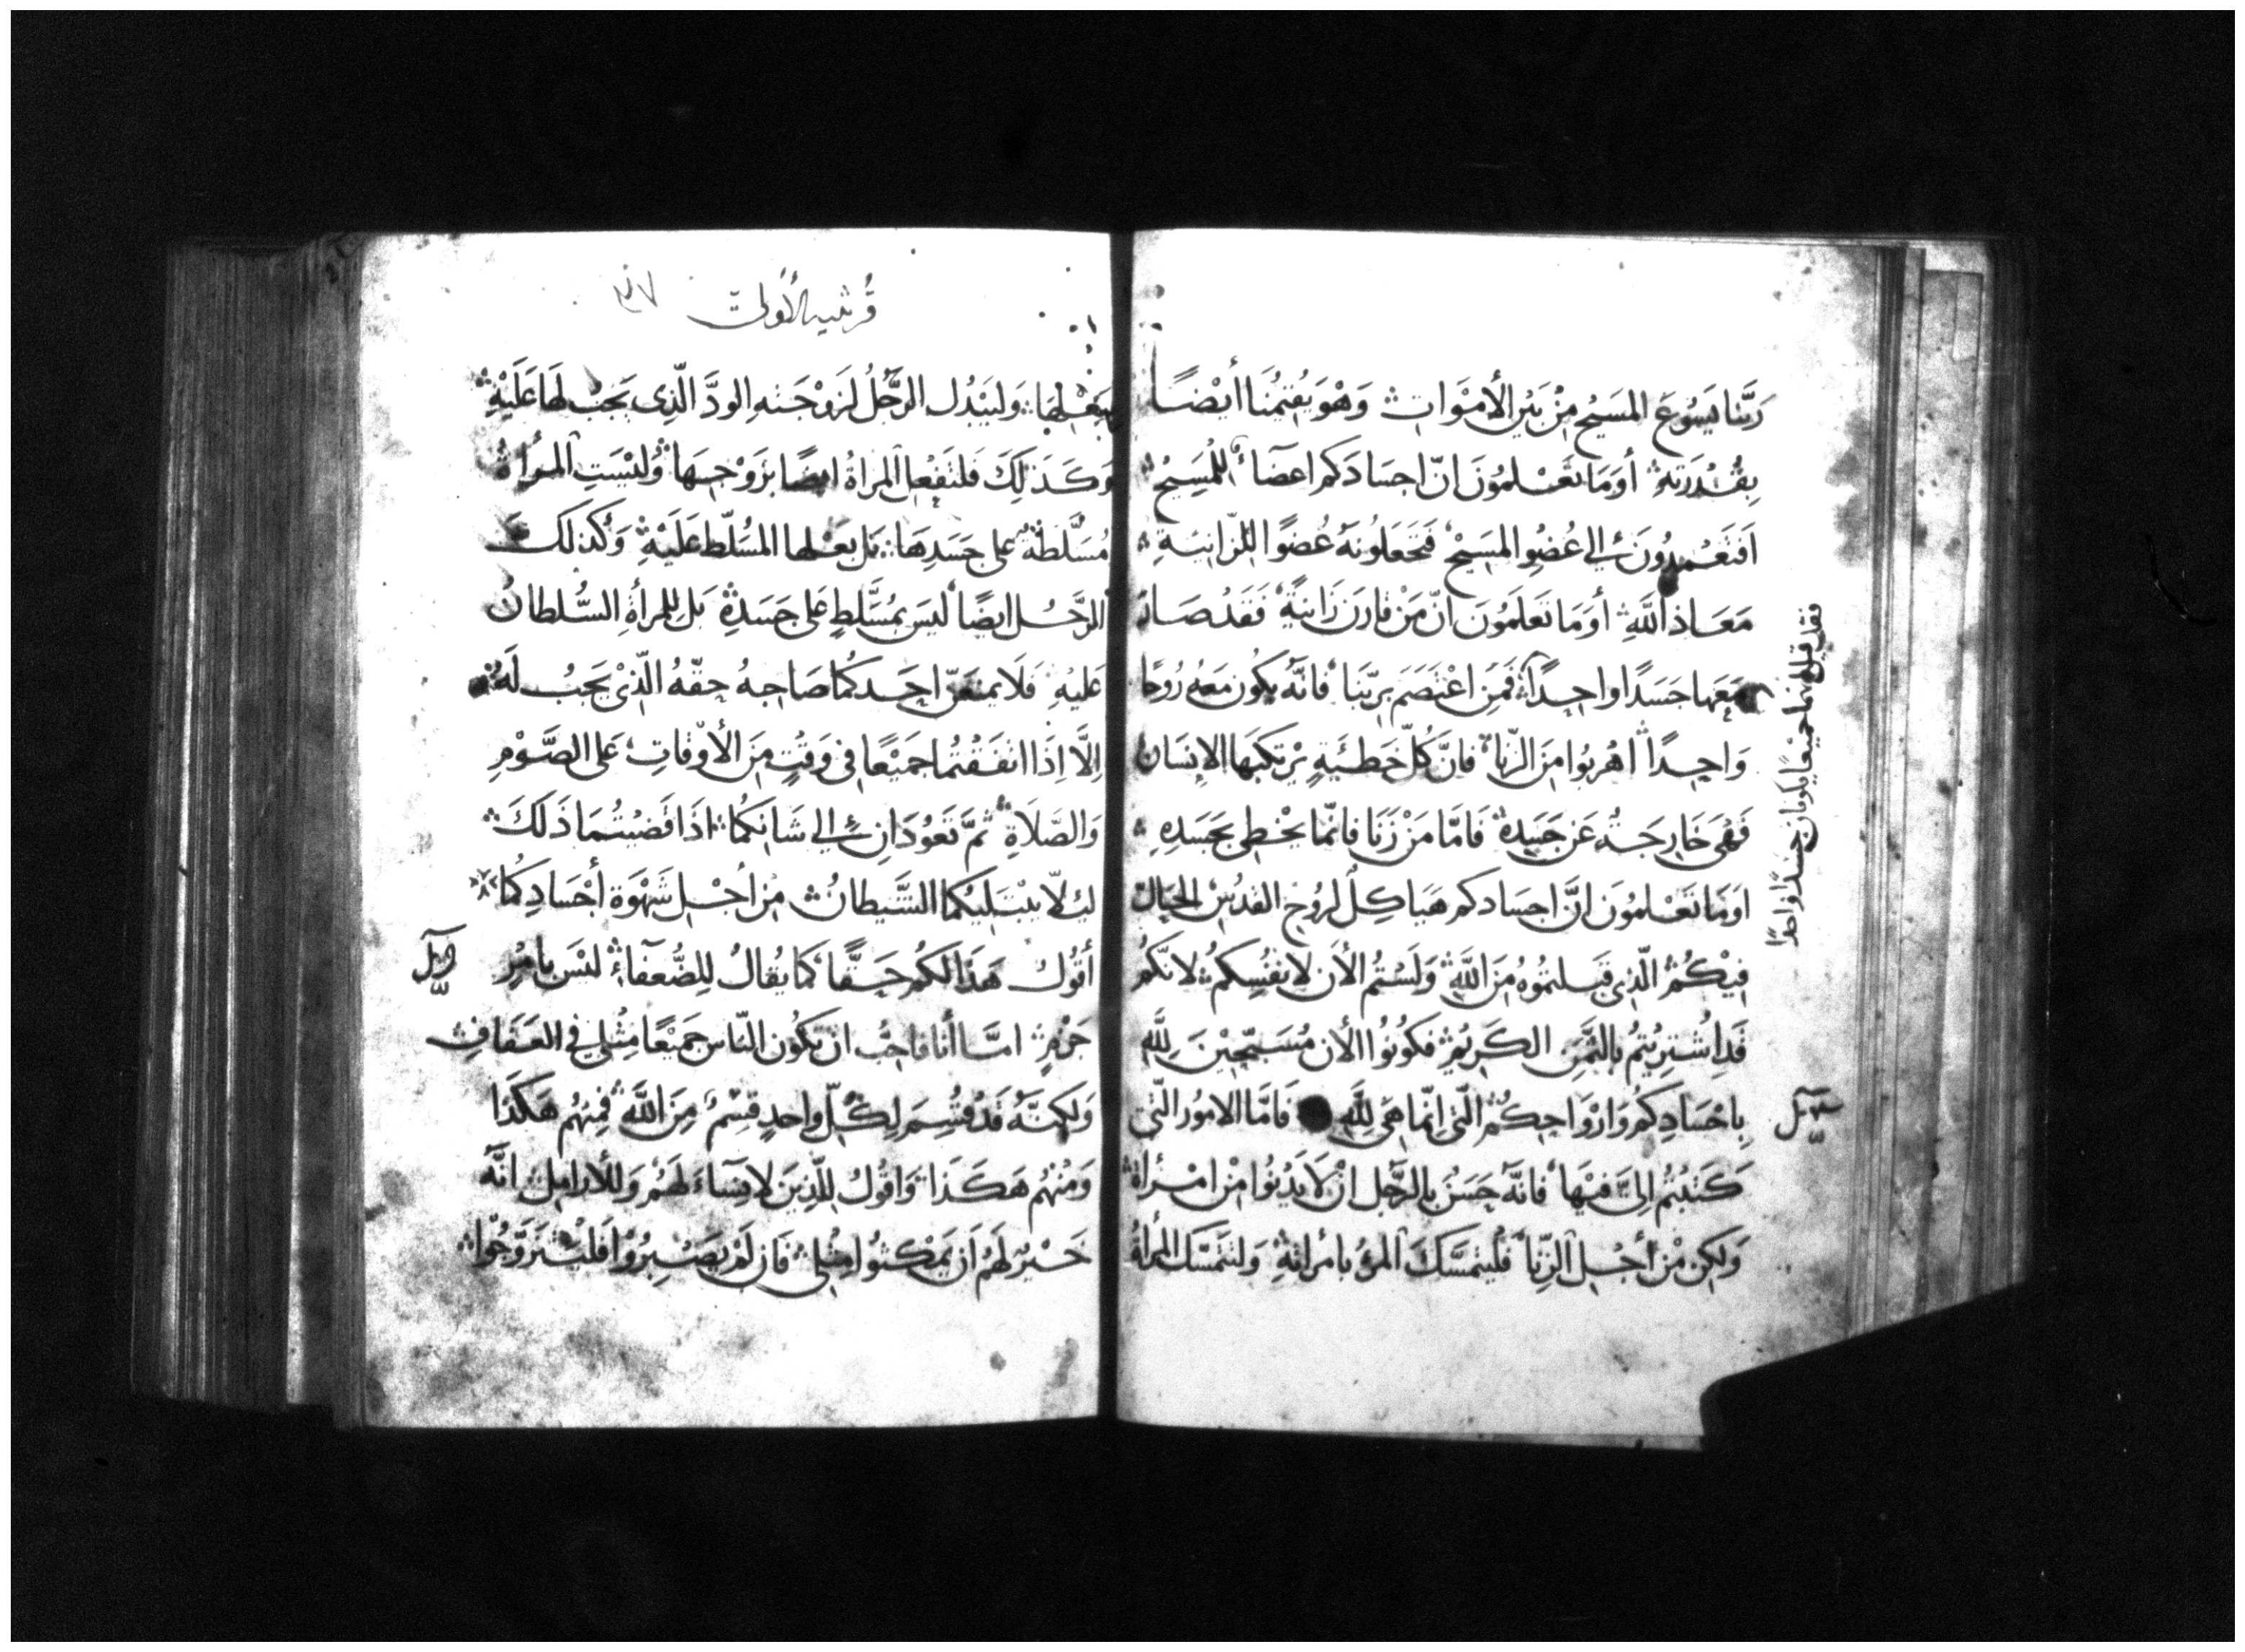 رَبَّنا يَسُوعَ المسَيْح مِنْ بَيْنِ الأموَاتِ وَهْوَ يُقيمُنَا أيْضًا
بِقُدْرَتهِ أوَمَا تَعْلمُونَ انّ اجسَادَكم اعضَآءٌ لِلْمَسِيْحِ
اَفتَعْمِدُونَ إلى عُضوِ المسَيْح فَتجعَلُونَهُ عُضوًا للزّانيَةِ
مَعَاذ اللَّهِ أوَمَا تَعلَمُونَ انّ مَنْ قارَن زَانيَةً فَقَدْ صَارَ
مَعَها جَسَدًا واحِدًا فَمَنِ اعْتَصَمَ برَبّنَا فانَّهُ يكُون مَعَهُ رُوحًا
وَاحِدًا اهْربُوا مِنَ الزّنا فانَّ كُلّ خَطيَئَةٍ يرْتكبَها الانِسَان
فَهْيَ خَارجَةٌ عَن جَسَدِهِ فَامَّا مَنْ زَنَا فانّما يخْطِى بجَسَدِهِ
اوَمَا تَعْلمُونَ انَّ اجسَادكم هَيَاكِل لرُوحِ القدُسْ الحَالّ
فِيْكُمْ الّذِى قَبلتمُوهُ مِنَ اللَّهِ وَلَسْتُم الأن لانفُسِكم لانّكُم
قَدِ اشْتريْتمُ بِالثّمَنِ الكَريْمِ فكُونُوا الأن مُسَبّحِيْنَ لِلَّهِ
بِاجْسَادِكُم وَارْوَاحِكُم الّتى اِنّما هَى لِلَّهِ فَامّا الامُور الّتى
كَتبْتُم اِلىَّ فيْهَا فانَّهُ حَسَنٌ بالرَّجُل انْ لاَ يَدْنُوا مِنْ امْرأة
وَلكِن مْن أجْل الزّنِا فَليتمَسَّكَ المرؤ بامرأتهِ وَلتتمَسَّك المرأةُ
فقد قيل انهما جميعًا يكونان جسَدًا واحدًا
قُرنثيه الأولىٰ
ببَعْلِهَا وَليَبْدُل الرَّجُلُ لزَوْجَتهِ الودَّ الّذِى يَجبْ لهَا عَلَيْهِ
وَكَذلِكَ فَلتَفْعِل المراةُ ايضًا بزَوْجِهَا وَليْسَتِ المرأةُ
مُسَلّطَةٌ على جَسَدِهَا بَل بَعْلها المُسَلّط عَلَيْهِ وَكَذلِكَ
الرّجُل ايضًا ليسَ بمُسَلّطٍ عَلى جَسَدِهِ بَلِ للِمرأةِ السُّلطانُ
عَليْهِ فَلَا يمنعَنّ احَدكُما صَاحِبهُ حقّهُ الّذِىْ يَجبُ لَهُ
اِلَّا اِذَا اتفَقْتُما جَمَيْعًا فى وَقتٍ مِنَ الأوْقاتِ عَلى الصَّوْمِ
وَالصّلاَةِ ثمَّ تَعُودَانِ إلى شَانكُما اذَا قَضيْتُمَا ذَلكَ
ليلّا يبْتَليَكُما الشَّيطانُ مِن أجْلِ شَهْوَة أجْسَادِكُما
أقُولُ هَذَا لكُم حَقًّا كَمَا يقُالُ لِلضُّعَفآءِ ليْسَ بامرِ
جَزْمٍ امَّا أنا فاحِبُّ ان يكُون النّاس جَمَيْعًا مِثْلى فى العَفافِ
وَلكِنَّهُ قَدْ قُسِمَ لِكُلّ واحدٍ قِسْمٌ مِنَ اللَّهِ فِمِنهُم هَكَذا
وَمْنْهُم هَكَذَا وَاقُولُ لِلّذِينَ لا نِسَآءَ لَهُم وَللأرامِل انّهُ
خَيْرٌ لَهُم اَن يَمكثوا مِثْلى فَان لَمْ يَصْبِرُوْا فَليْتَزَوَّجُوا